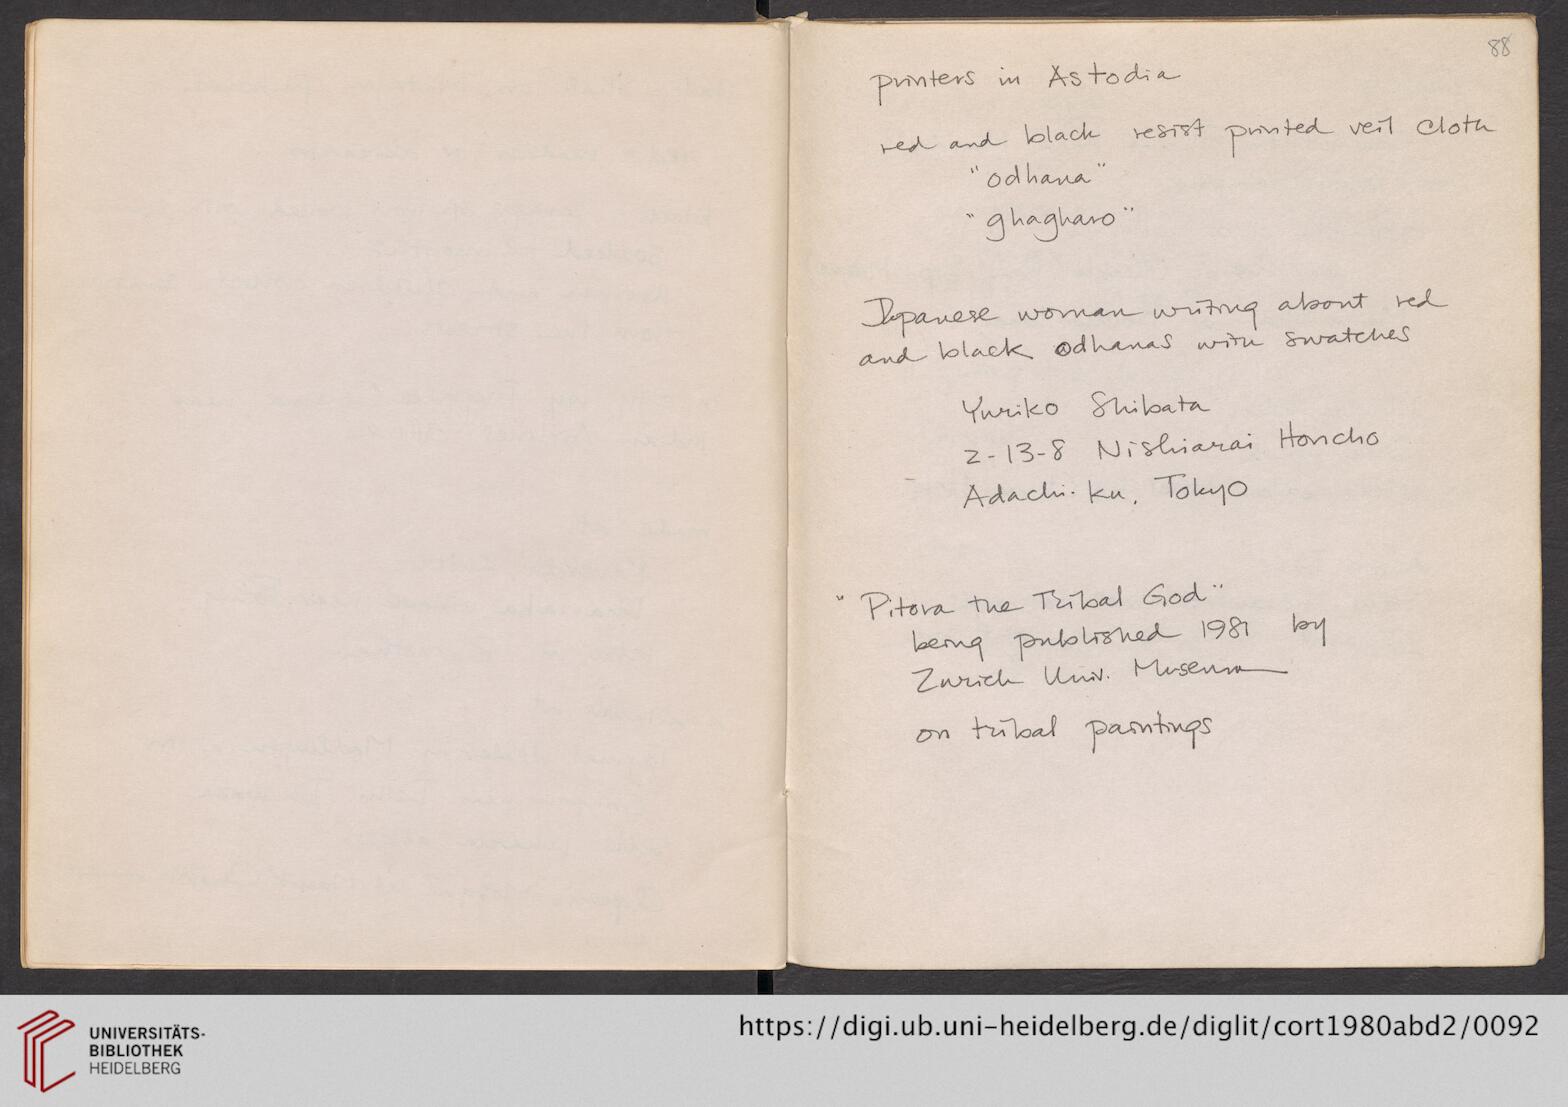 88
printers in Astodia
red and black resist printed veil cloth
"odhana"
"ghagharo"
Japanese woman writing about red
and black odhanas with swatches
Yuriko Shibata
2-13-8 Nishiarai Honcho
Adachi-ku, Tokyo
"Pitora the Tribal God"
being published 1981 by
Zurich Univ. Museum
on tribal paintings
UNIVERSITÄTS-
BIBLIOTHEK
HEIDELBERG
https://digi.ub.uni-heidelberg.de/diglit/cort1980abd2/0092